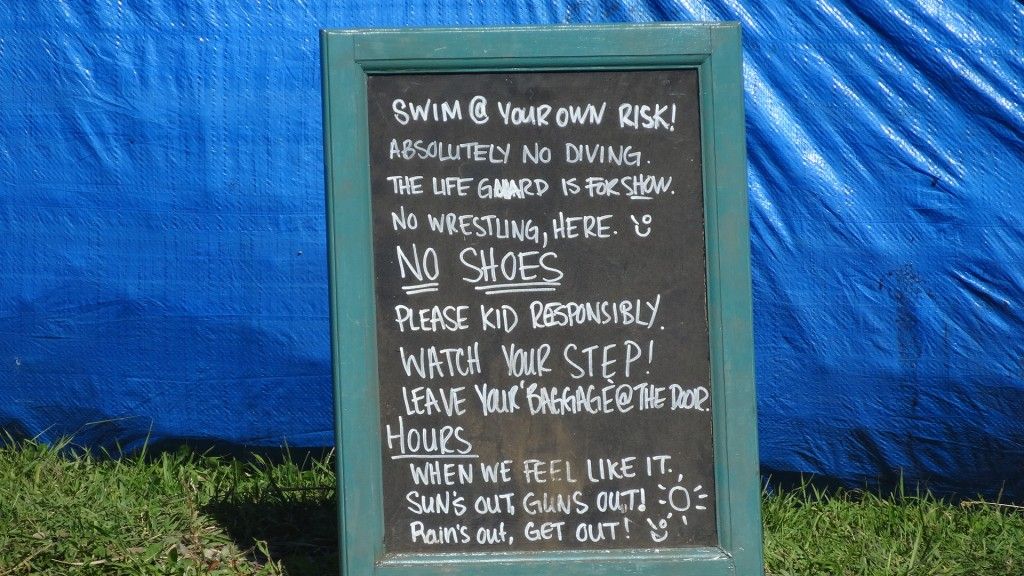 SWIM @ YOUR OWN RISK!
ABSOLUTELY NO DIVING.
THE LIFE GUARD IS FOR SHOW.
NO WRESTLING, HERE.
NO SHOES
PLEASE KID RESPONSIBLY.
WATCH YOUR STEP!
LEAVE YOUR "BAGGAGE" @ THE DOOR.
HOURS
WHEN WE FEEL LIKE IT.
SUN'S OUT, GUNS OUT!
Rain's out, GET OUT!